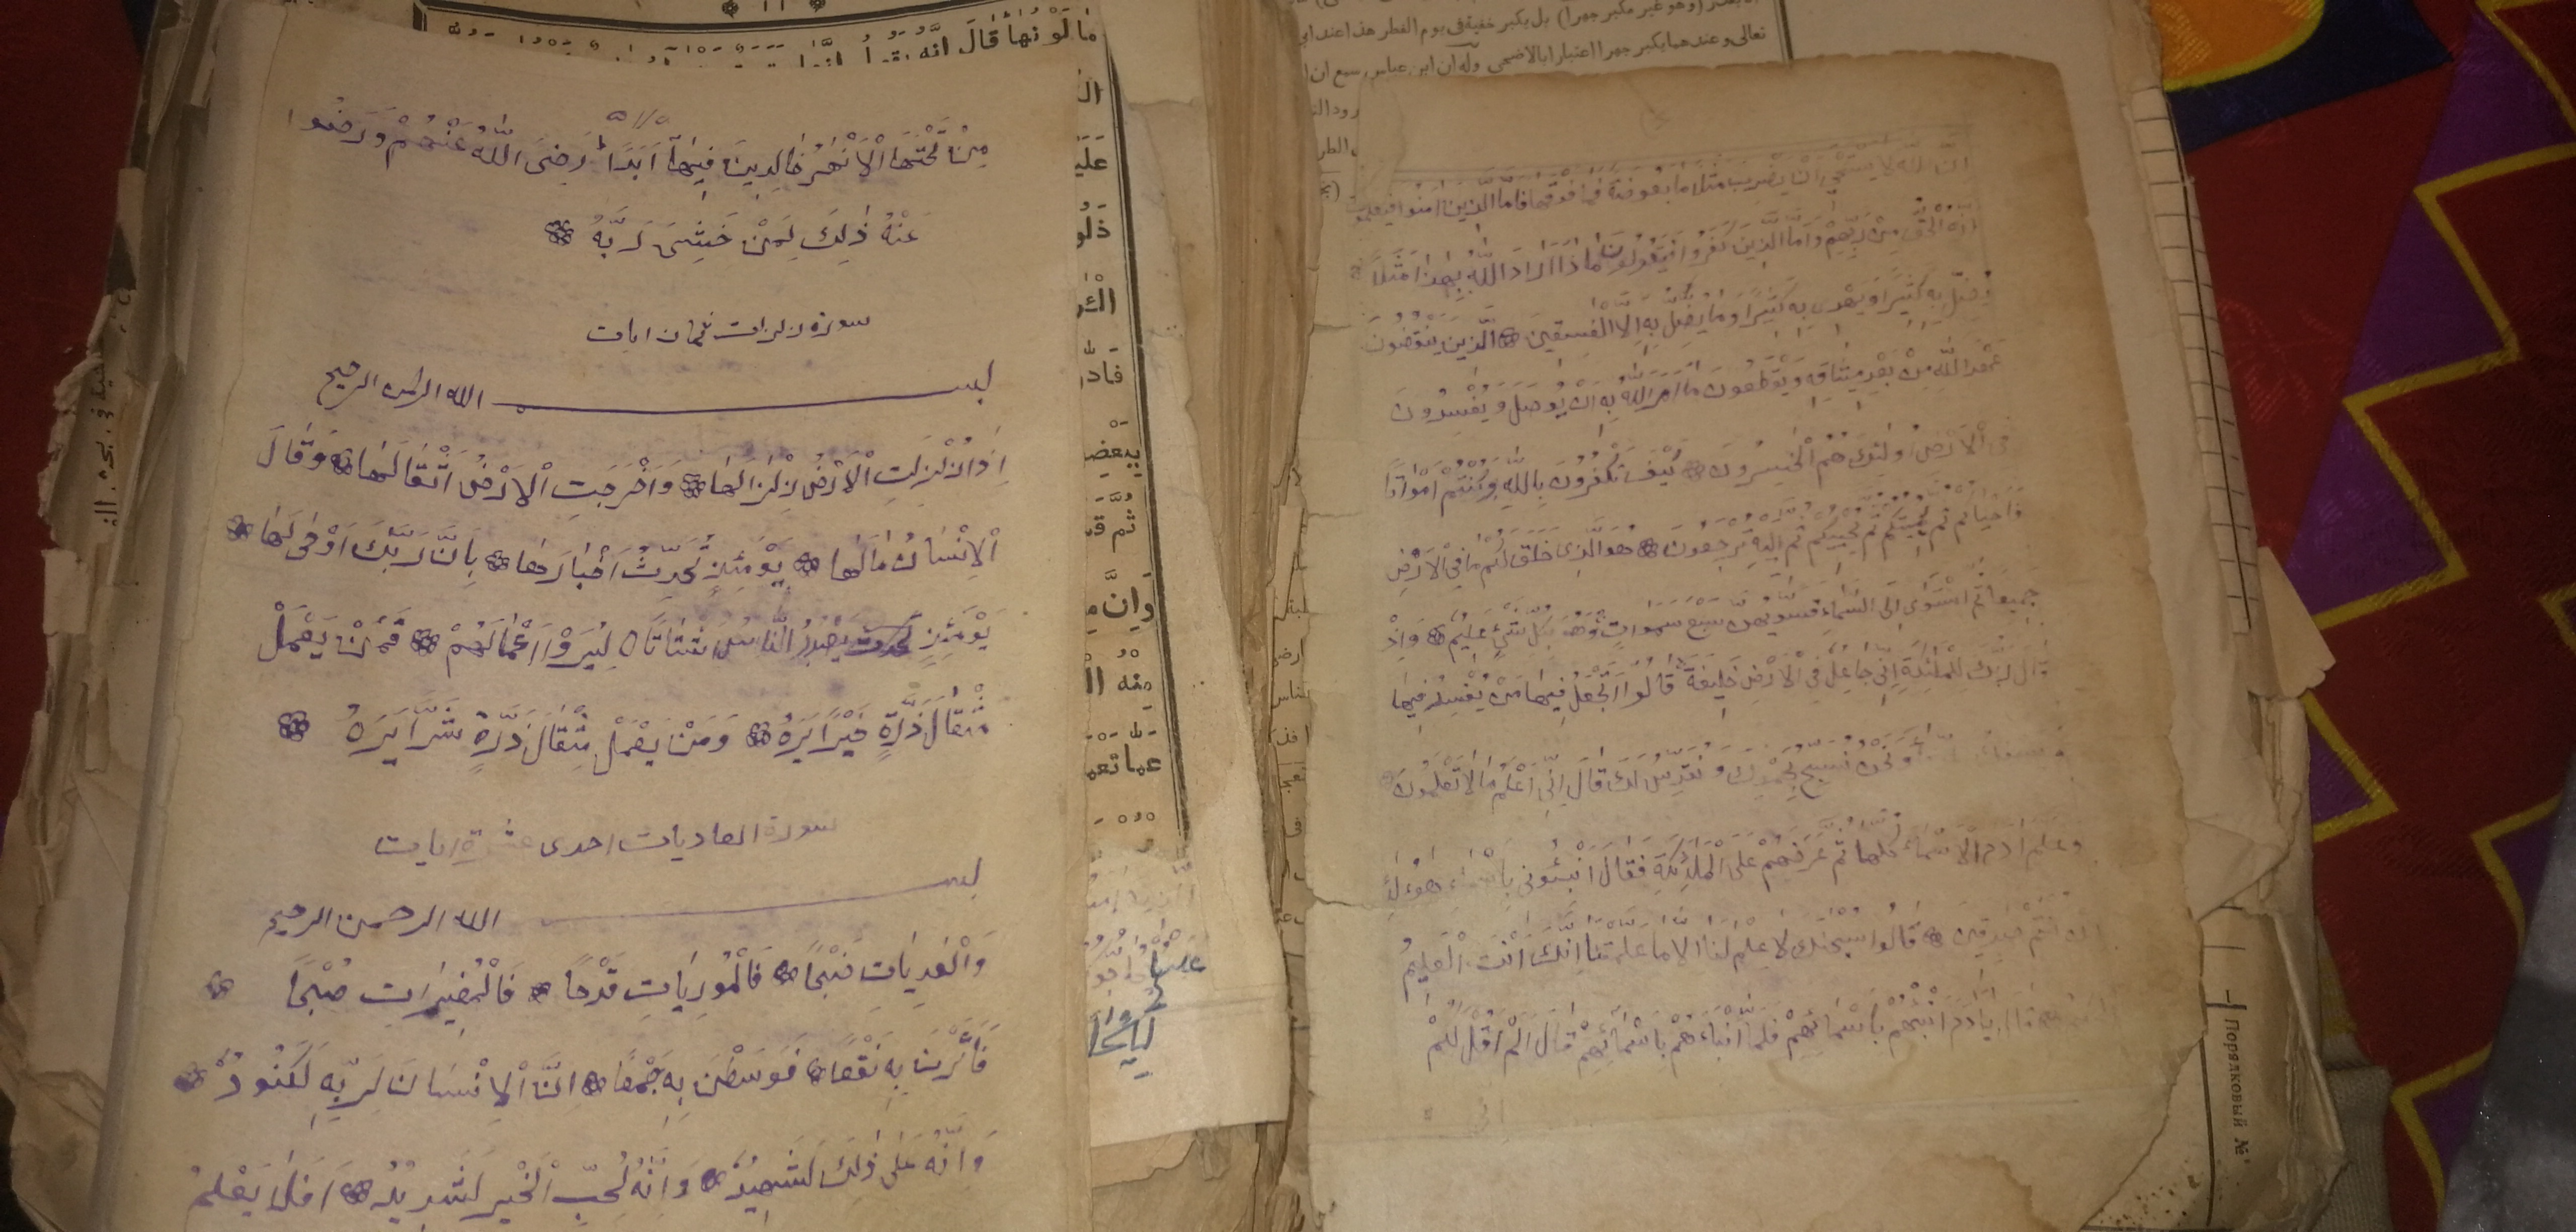 مِنْ تَحْتِهَا الْاَنْهٰرُ خَالِدِينَ فِيهَا اَبَدًا رَضِىَ اللّٰهُ عَنْهُمْ وَرَضُوا
عَنْهُ ذٰلِكَ لِمَنْ خَشِىَ رَبَّهُ
سورة زلزلت ثمان ايات
بسم الله الرحمن الرحيم
اِذَا زُلْزِلَتِ الْاَرْضُ زِلْزَالَهَا وَاَخْرَجَتِ الْاَرْضُ اَثْقَالَهَا وَقَالَ
الْاِنْسَانُ مَالَهَا يَوْمَئِذٍ تُحَدِّثُ اَخْبَارَهَا بِاَنَّ رَبَّكَ اَوْحٰى لَهَا
يَوْمَئِذٍ يَصْدُرُ النَّاسُ اَشْتَاتًا لِيُرَوْا اَعْمَالَهُمْ فَمَنْ يَعْمَلْ
مِثْقَالَ ذَرَّةٍ خَيْرًا يَرَهُ وَمَنْ يَعْمَلْ مِثْقَالَ ذَرَّةٍ شَرًّا يَرَهُ
سورة العاديات احدى عشرة ايات
بسم الله الرحمن الرحيم
وَالْعٰدِيَاتِ ضَبْحًا فَالْمُورِيَاتِ قَدْحًا فَالْمُغِيرَاتِ صُبْحًا
فَاَثَرْنَ بِهِ نَقْعًا فَوَسَطْنَ بِهِ جَمْعًا اِنَّ الْاِنْسَانَ لِرَبِّهِ لَكَنُودٌ
وَاِنَّهُ عَلٰى ذٰلِكَ لَشَهِيدٌ وَاِنَّهُ لِحُبِّ الْخَيْرِ لَشَدِيدٌ اَفَلَا يَعْلَمُ
تعالى وعندهما يكبر جهرا اعتبارا بالاضحى وله ان ابن عباس سمع
اِنَّ اللّٰهَ لَا يَسْتَحْيِ اَنْ يَضْرِبَ مَثَلًا مَا بَعُوضَةً فَمَا فَوْقَهَا فَاَمَّا الَّذِينَ اٰمَنُوا فَيَعْلَمُونَ
اَنَّهُ الْحَقُّ مِنْ رَبِّهِمْ وَاَمَّا الَّذِينَ كَفَرُوا فَيَقُولُونَ مَاذَا اَرَادَ اللّٰهُ بِهٰذَا مَثَلًا
يُضِلُّ بِهِ كَثِيرًا وَيَهْدِى بِهِ كَثِيرًا وَمَا يُضِلُّ بِهِ اِلَّا الْفٰسِقِينَ الَّذِينَ يَنْقُضُونَ
عَهْدَ اللّٰهِ مِنْ بَعْدِ مِيثَاقِهِ وَيَقْطَعُونَ مَا اَمَرَ اللّٰهُ بِهِ اَنْ يُوصَلَ وَيُفْسِدُونَ
فِى الْاَرْضِ اُولٰئِكَ هُمُ الْخٰسِرُونَ كَيْفَ تَكْفُرُونَ بِاللّٰهِ وَكُنْتُمْ اَمْوَاتًا
فَاَحْيَاكُمْ ثُمَّ يُمِيتُكُمْ ثُمَّ يُحْيِيكُمْ ثُمَّ اِلَيْهِ تُرْجَعُونَ هُوَ الَّذِى خَلَقَ لَكُمْ مَا فِى الْاَرْضِ
جَمِيعًا ثُمَّ اسْتَوٰى اِلَى السَّمَاءِ فَسَوّٰيهُنَّ سَبْعَ سَمٰوَاتٍ وَهُوَ بِكُلِّ شَىْءٍ عَلِيمٌ وَاِذْ
قَالَ رَبُّكَ لِلْمَلٰئِكَةِ اِنِّى جَاعِلٌ فِى الْاَرْضِ خَلِيفَةً قَالُوا اَتَجْعَلُ فِيهَا مَنْ يُفْسِدُ فِيهَا
وَنَحْنُ نُسَبِّحُ بِحَمْدِكَ وَنُقَدِّسُ لَكَ قَالَ اِنِّى اَعْلَمُ مَا لَا تَعْلَمُونَ
وَعَلَّمَ اٰدَمَ الْاَسْمَاءَ كُلَّهَا ثُمَّ عَرَضَهُمْ عَلَى الْمَلٰئِكَةِ فَقَالَ اَنْبِئُونِى بِاَسْمَاءِ هٰؤُلَاءِ
اِنْ كُنْتُمْ صٰدِقِينَ قَالُوا سُبْحٰنَكَ لَا عِلْمَ لَنَا اِلَّا مَا عَلَّمْتَنَا اِنَّكَ اَنْتَ الْعَلِيمُ
الْحَكِيمُ قَالَ يَا اٰدَمُ اَنْبِئْهُمْ بِاَسْمَائِهِمْ فَلَمَّا اَنْبَاَهُمْ بِاَسْمَائِهِمْ قَالَ اَلَمْ اَقُلْ لَكُمْ
Порядковый №